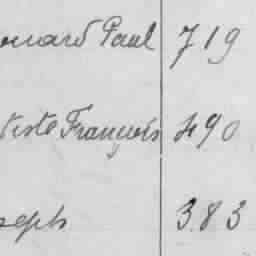 ouard Paul 719
tiste François 490
seph 383